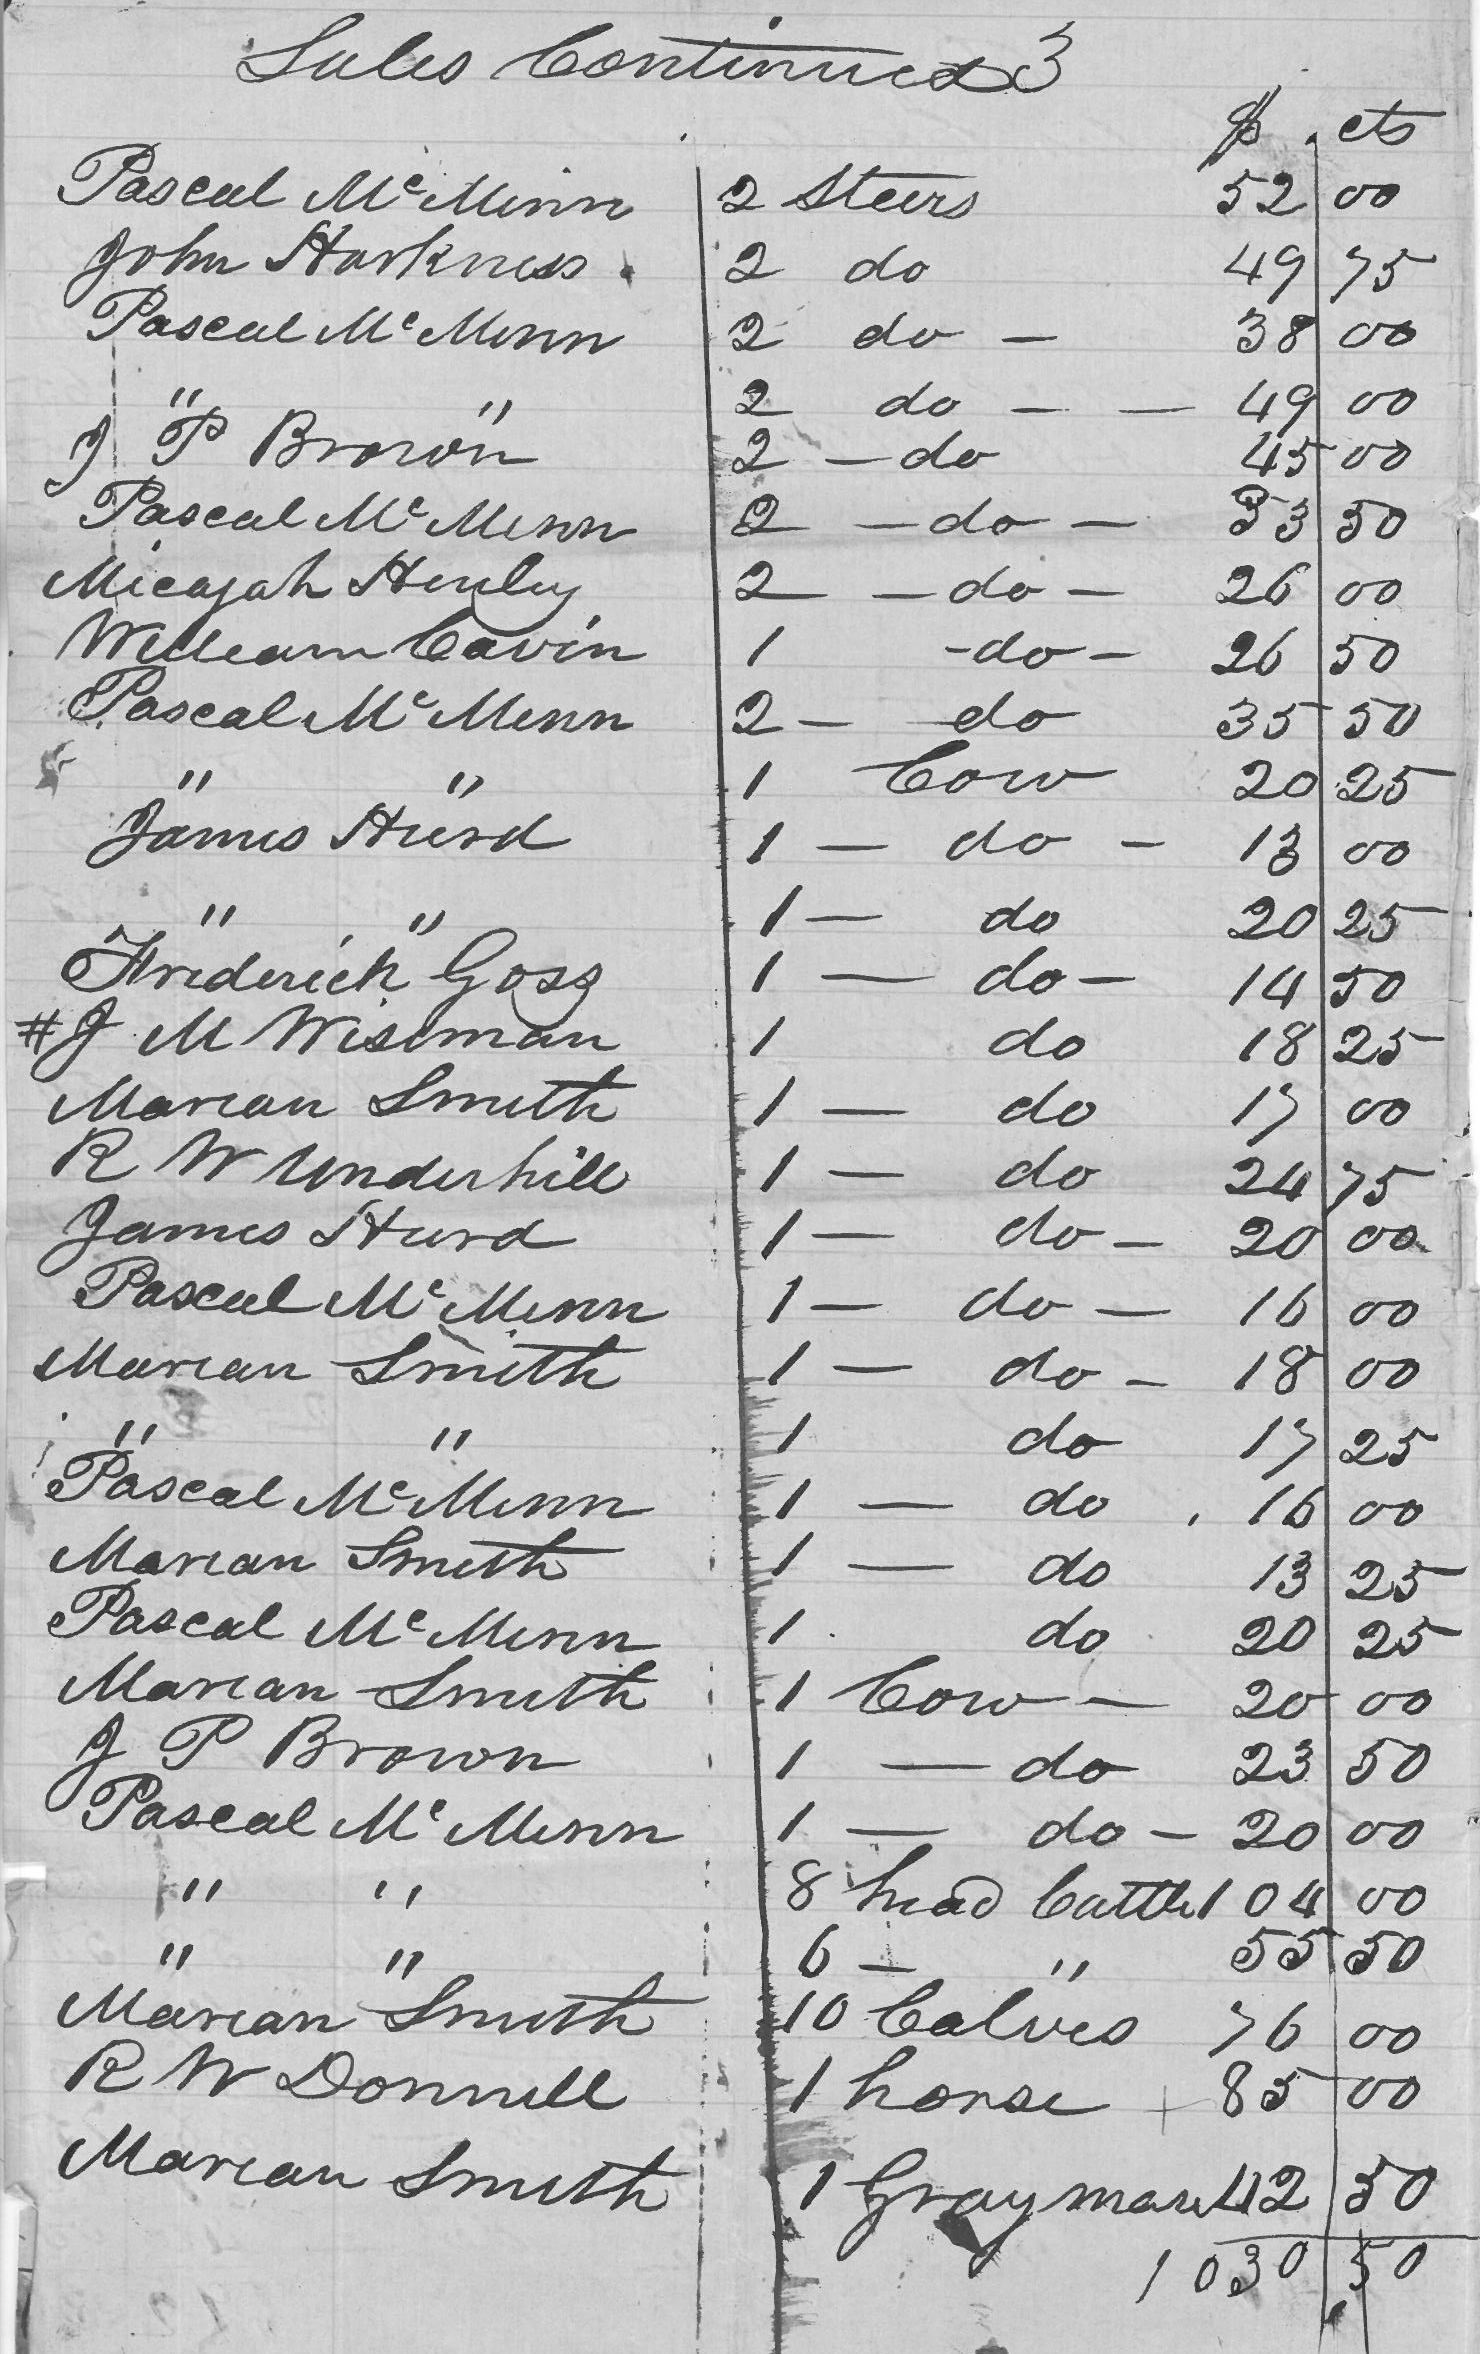 Sales Continued 3
$ . cts
Pascal McMinn 2 Steers 52 00
John Harkness 2 do 49 75
Pascal McMinn 2 do — 38 00
" " 2 do — — 49 00
J P Brown 2 — do 45 00
Pascal McMinn 2 — do — 33 50
Micajah Henley 2 — do — 26 00
William Cavin 1 - do - 26 50
Pascal McMinn 2 — do 35 50
" " 1 Cow 20 25
James Hurd 1 — do - 13 00
" " 1 — do 20 25
Frederick Goss 1 — do - 14 50
# J M Wiseman 1 do 18 25
Marian Smith 1 — do 17 00
R W Underhill 1 — do 24 75
James Hurd 1 — do - 20 00
Pascal McMinn 1 — do — 16 00
Marian Smith 1 — do - 18 00
" " 1 do 17 25
Pascal McMinn 1 — do 16 00
Marian Smith 1 — do 13 25
Pascal McMinn 1 do 20 25
Marian Smith 1 Cow — 20 00
J P Brown 1 — do 23 50
Pascal McMinn 1 — do - 20 00
" " 8 head Cattle 104 00
" " 6 — " 55 50
Marian Smith 10 Calves 76 00
R W Donnell 1 horse 85 00
Marian Smith 1 Gray mare 42 50
1030.50